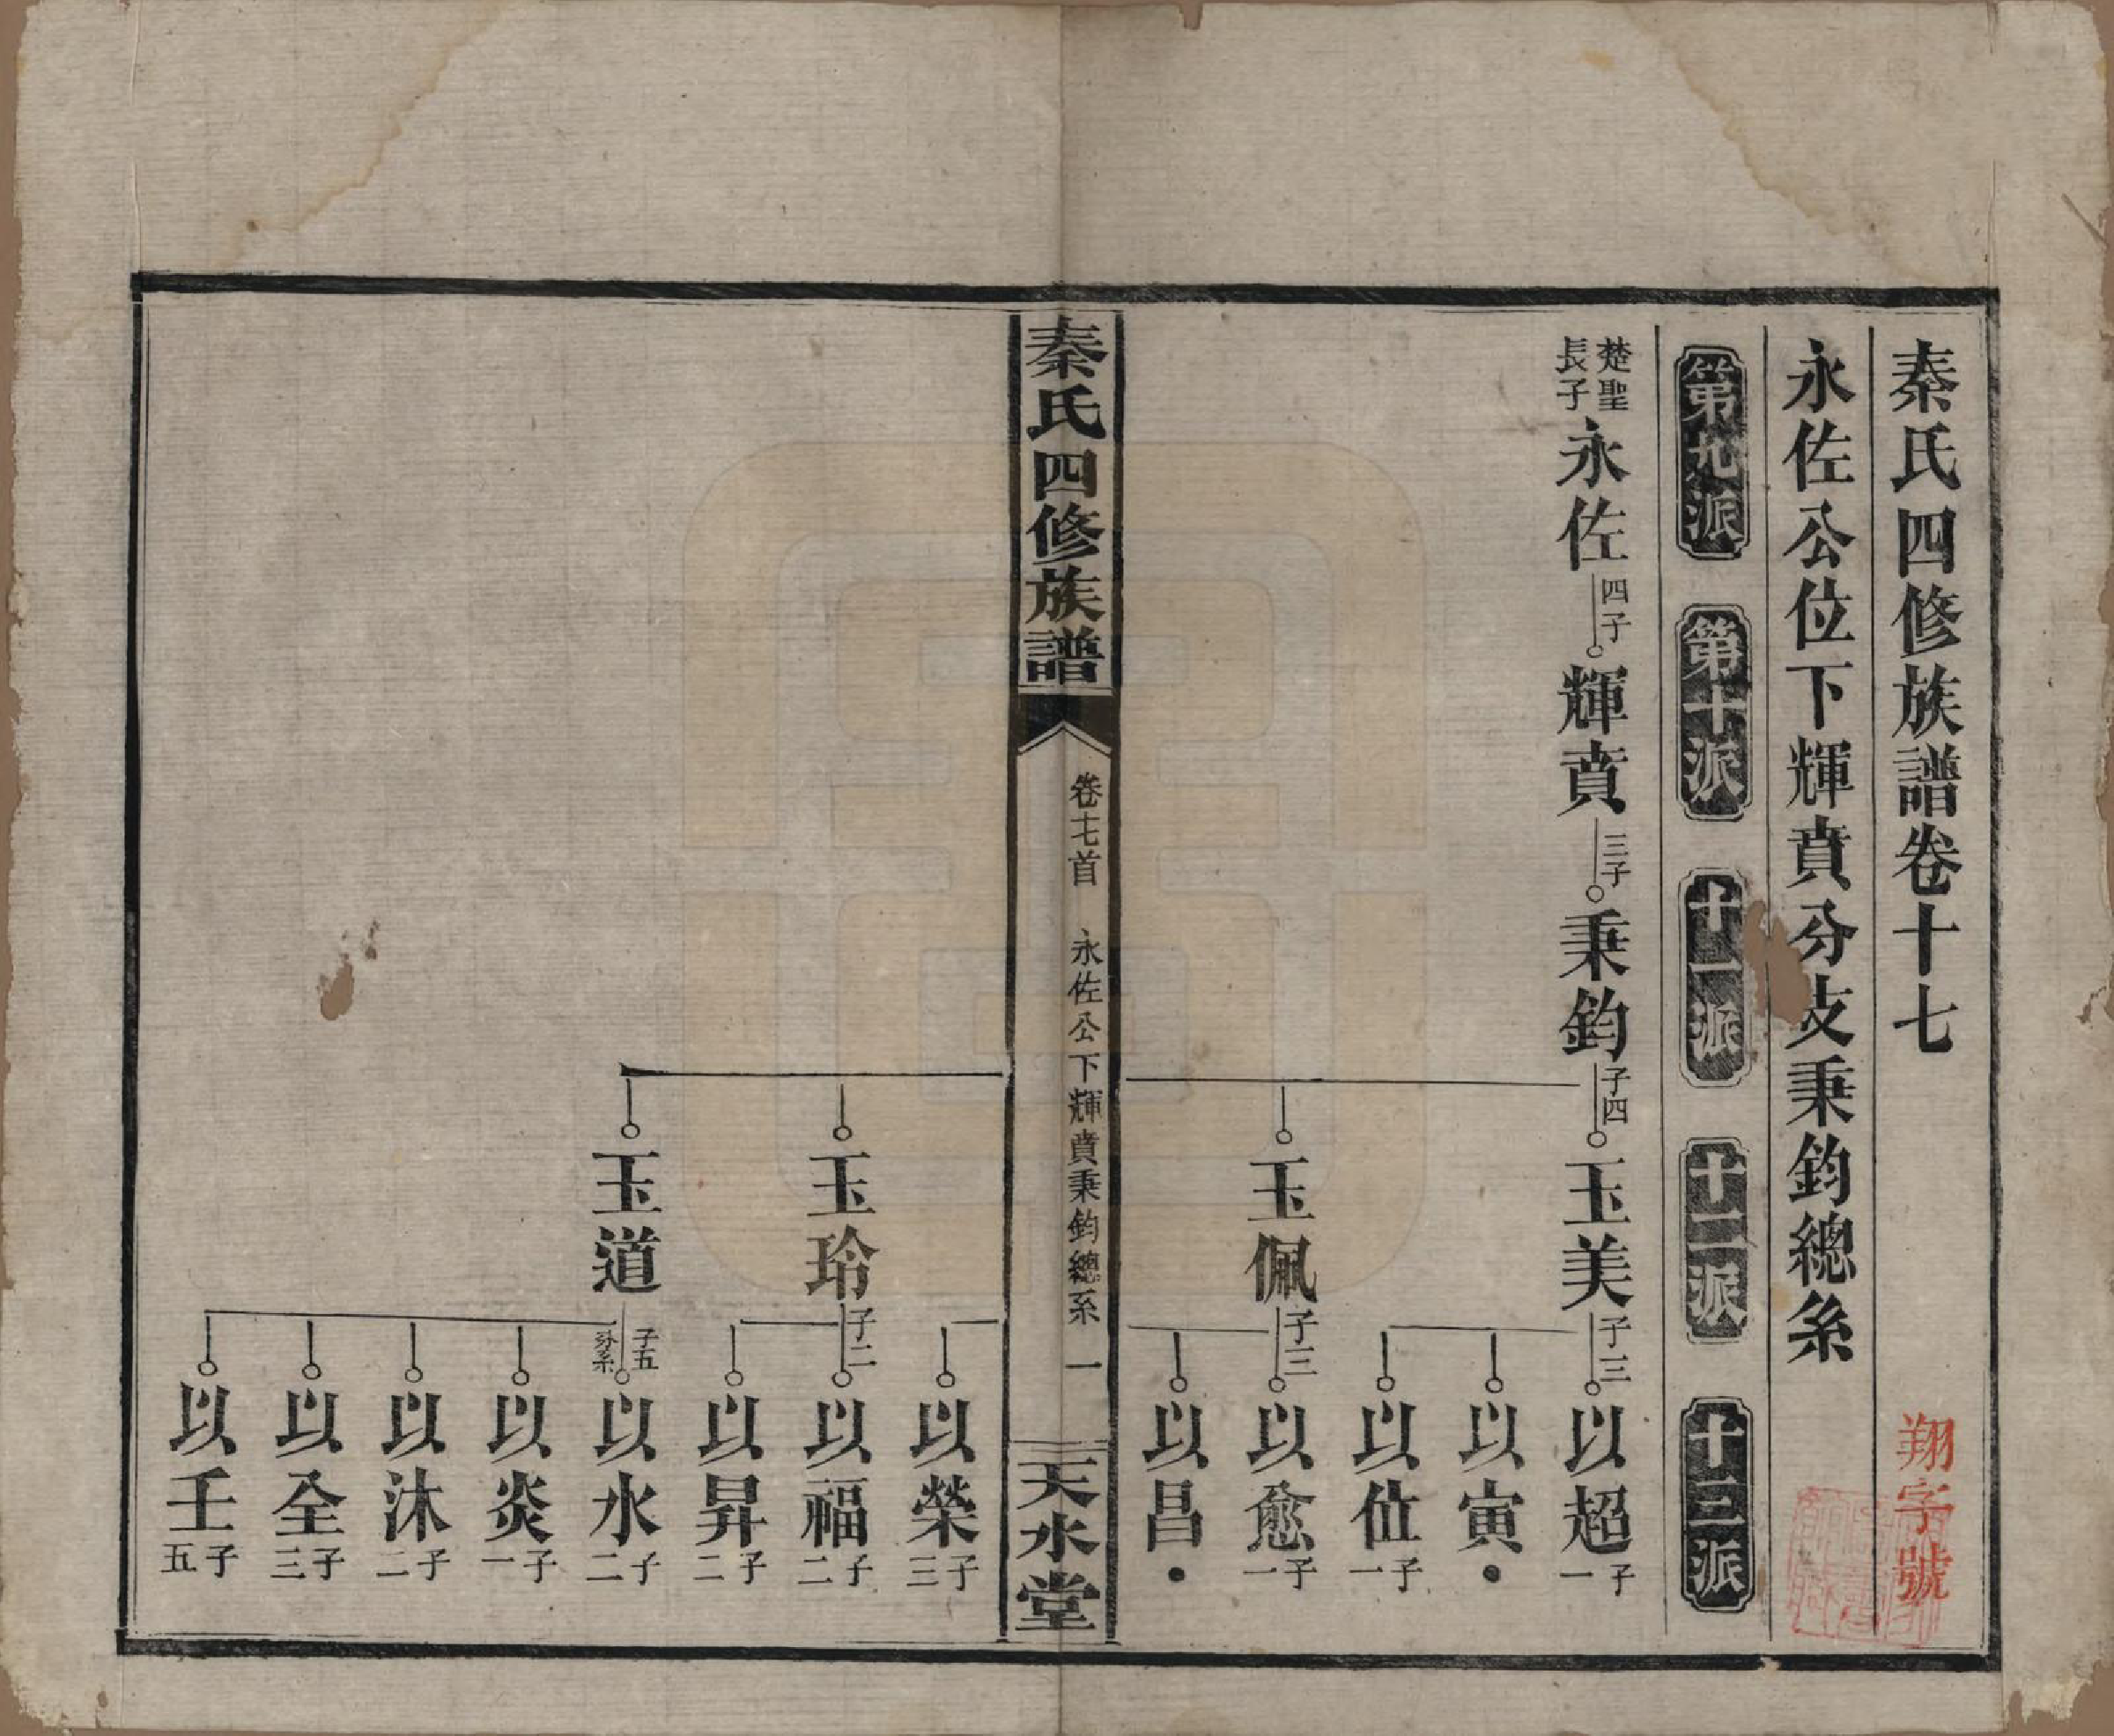 秦氏四修族譜卷十七
翔字號
永佐公位下輝賁分支秉鈞總系
第九派
第十派
十一派
十二派
十三派
楚聖
長子
永佐
四子
輝賁
三子
秉鈞
子四
玉美
子三
以超
子一
以寅
以位
子一
玉佩
子三
以愈
子一
以昌
秦氏四修族譜
卷十七首
永佐公下輝賁秉鈞總系
一
天水堂
以榮
子三
玉玲
子二
以福
子二
以昇
子二
玉道
子五
分系
以水
子二
以炎
子一
以沐
子二
以全
子三
以壬
子五